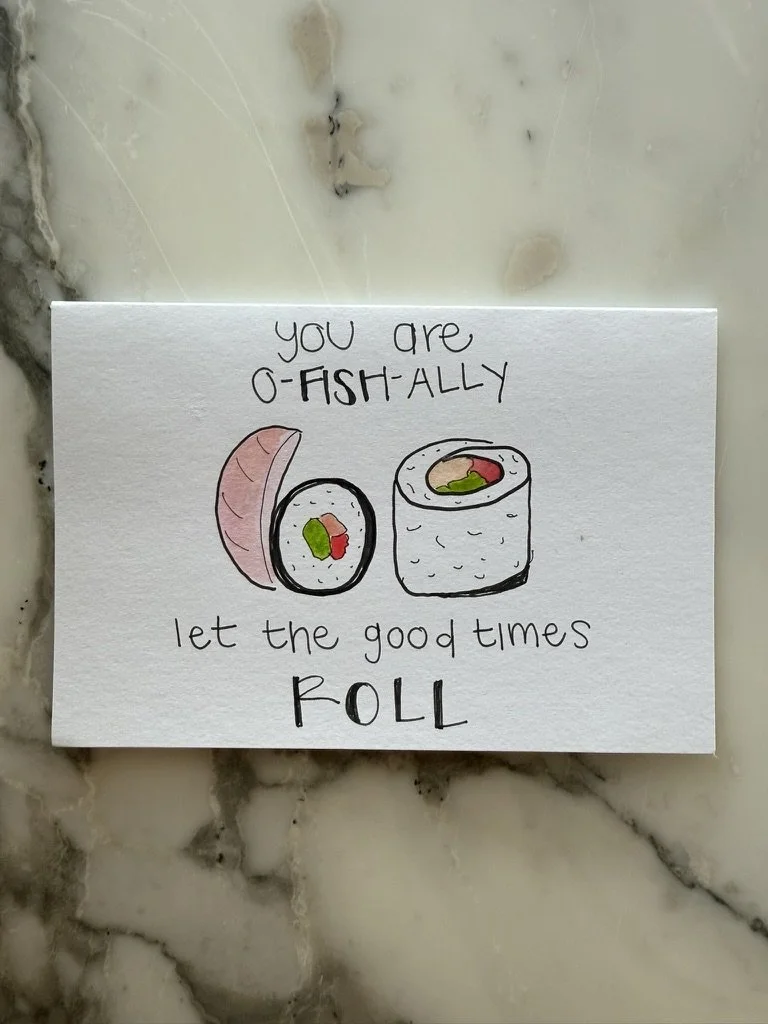 you are
O-FISH-ALLY
60
let the good times
ROLL